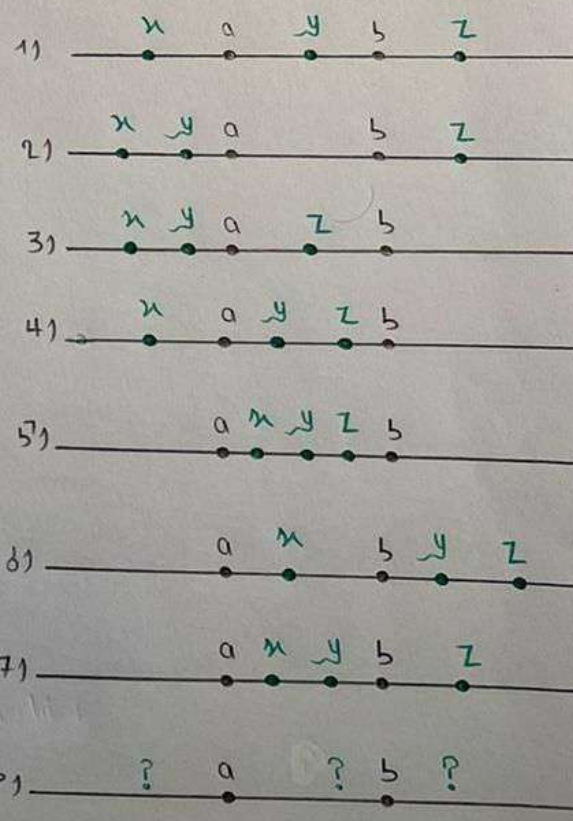 x a y b z
1)
x y a b z
2)
x y a z b
3)
x a y z b
4)
a x y z b
5)
a x b y z
6)
a x y b z
7)
? a ? b ?